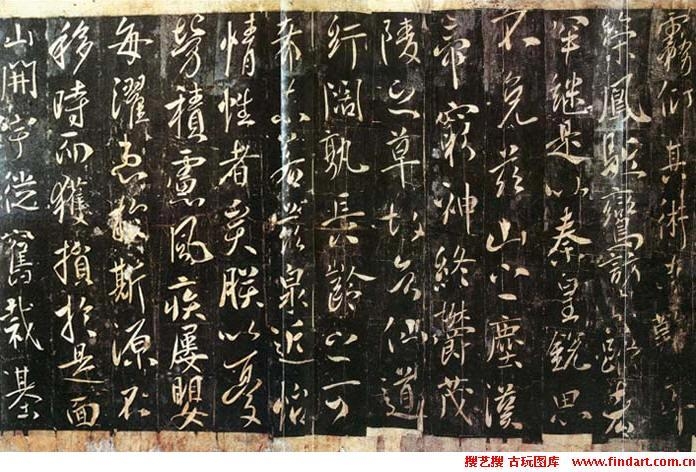 仰其術
鳳駐鸞者
罕繼是以秦皇銳思
不免茲山之塵漢
帝窮神終鬱茂
陵之草故知仙道
紆闊孰長齡之可
未若茲泉近怡
情性者矣朕以憂
勞積慮風疾屢嬰
每濯患於斯源不
移時而獲損於是面
山開宇從舊裁基
搜艺搜 古玩图库 www.findart.com.cn